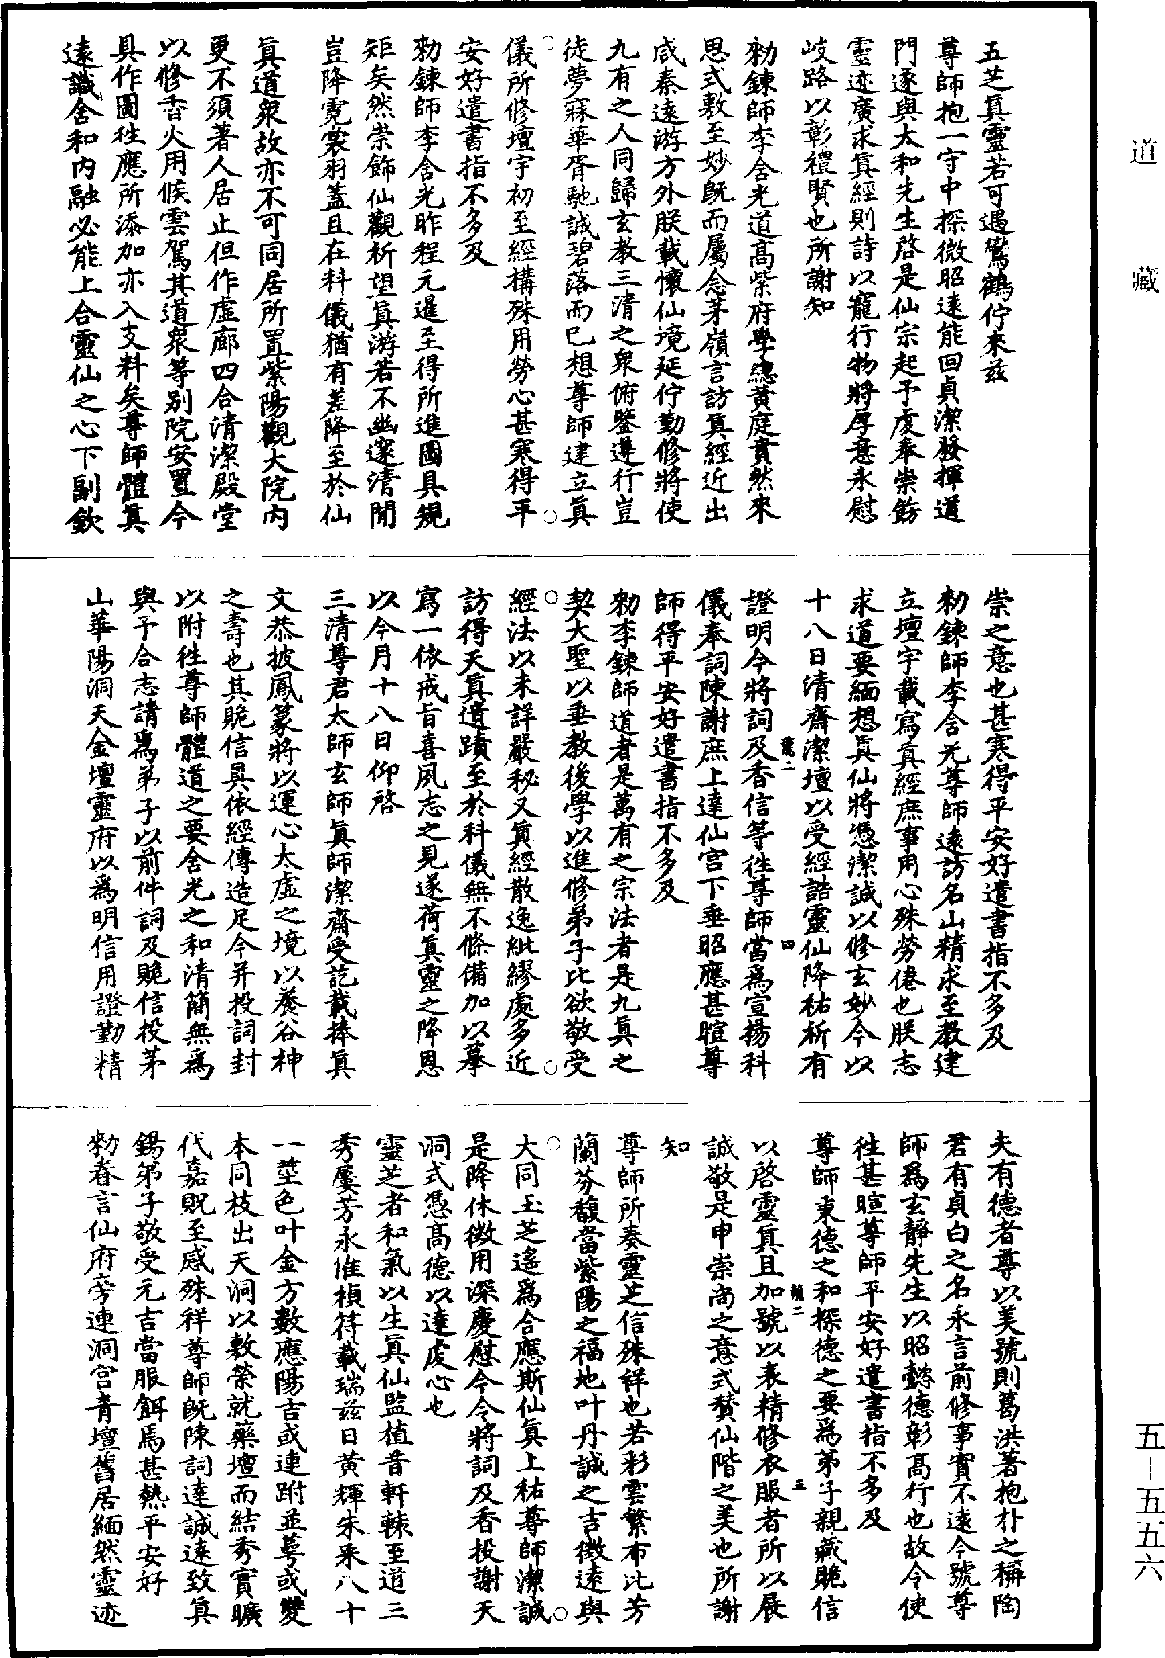 道藏
五芝真靈若可遇鸞鶴佇來茲
尊師抱一守中探微昭遠能回貞潔發揮道
門遂與太和先生啓是仙宗起予虔奉崇飾
靈迹廣求真經則詩以寵行物將厚意永慰
岐路以彰禮賢也所謝知
勑鍊師李含光道高紫府學總黃庭賁然來
思式敷至妙既而屬念茅嶺言訪真經近出
咸秦遠游方外朕載懷仙境延佇勤修將使
九有之人同歸玄教三清之衆俯鑒遵行豈
徒夢寐華胥馳誠碧落而已想尊師建立真
儀所修壇宇初至經構殊用勞心甚寒得平
安好遣書指不多及
勑鍊師李含光昨程元暹至得所進圖具規
矩矣然崇飾仙觀祈望真游若不幽邃清閒
豈降霓裳羽蓋且在科儀猶有差降至於仙
真道衆故亦不可同居所置紫陽觀大院內
更不須著人居止但作虛廊四合清潔殿堂
以修香火用候雲駕其道衆等別院安置今
具作圖往應所添加亦入支料矣尊師體真
遠識含和內融必能上合靈仙之心下副欽
崇之意也甚寒得平安好遣書指不多及
勑鍊師李含光尊師遠訪名山精求至教建
立壇宇載寫真經庶事用心殊勞倦也朕志
求道要緬想真仙將憑潔誠以修玄妙今以
十八日清齋潔壇以受經誥靈仙降祐祈有
證明今將詞及香信等往尊師當爲宣揚科
儀奉詞陳謝庶上達仙宮下垂昭應甚暄尊
師得平安好遣書指不多及
勑李鍊師道者是萬有之宗法者是九真之
契大聖以垂教後學以進修弟子比欲敬受
經法以未詳嚴秘又真經散逸紕繆處多近
訪得天真遺蹟至於科儀無不條備加以摹
寫一依戒旨喜夙志之見遂荷真靈之降恩
以今月十八日仰啓
三清尊君太師玄師真師潔齋受訖載捧真
文恭披鳳篆將以運心太虛之境以養谷神
之壽也其贄信具依經傳造足今并投詞封
以附往尊師體道之要含光之和清簡無爲
與予合志請爲弟子以前件詞及贄信投茅
山華陽洞天金壇靈府以爲明信用證勤精
夫有德者尊以美號則葛洪著抱朴之稱陶
君有貞白之名永言前修事實不遠今號尊
師爲玄靜先生以昭懿德彰高行也故令使
往甚暄尊師平安好遣書指不多及
尊師秉德之和探德之要爲弟子親藏贄信
以啓靈真且加號以表精修衣服者所以展
誠敬是申崇尚之意式贊仙階之美也所謝
知
尊師所奏靈芝信殊祥也若彩雲繁布比芳
蘭芬馥當紫陽之福地叶丹誠之吉徵遠與
大同玉芝遙爲合應斯仙真上祐尊師潔誠
是降休徵用深慶慰今令將詞及香投謝天
洞式憑高德以達虔心也
靈芝者和氣以生真仙監植昔軒轅至道三
秀屢芳永惟楨符載瑞茲日黃輝朱采八十
一莖色叶金方數應陽吉或連跗並萼或雙
本同枝出天洞以敷榮就藥壇而結秀實曠
代嘉貺至感殊祥尊師既陳詞達誠遠致真
錫弟子敬受元吉當服餌焉甚熱平安好
勑眷言仙府旁連洞宮青壇舊居緬然靈迹
五-五五六